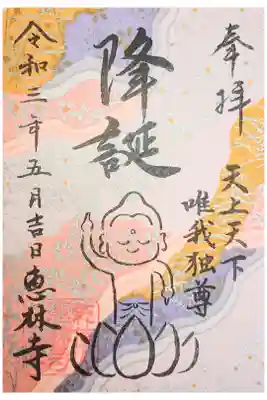 奉拝
天上天下
唯我独尊
降誕
令和三年五月吉日
恵林寺